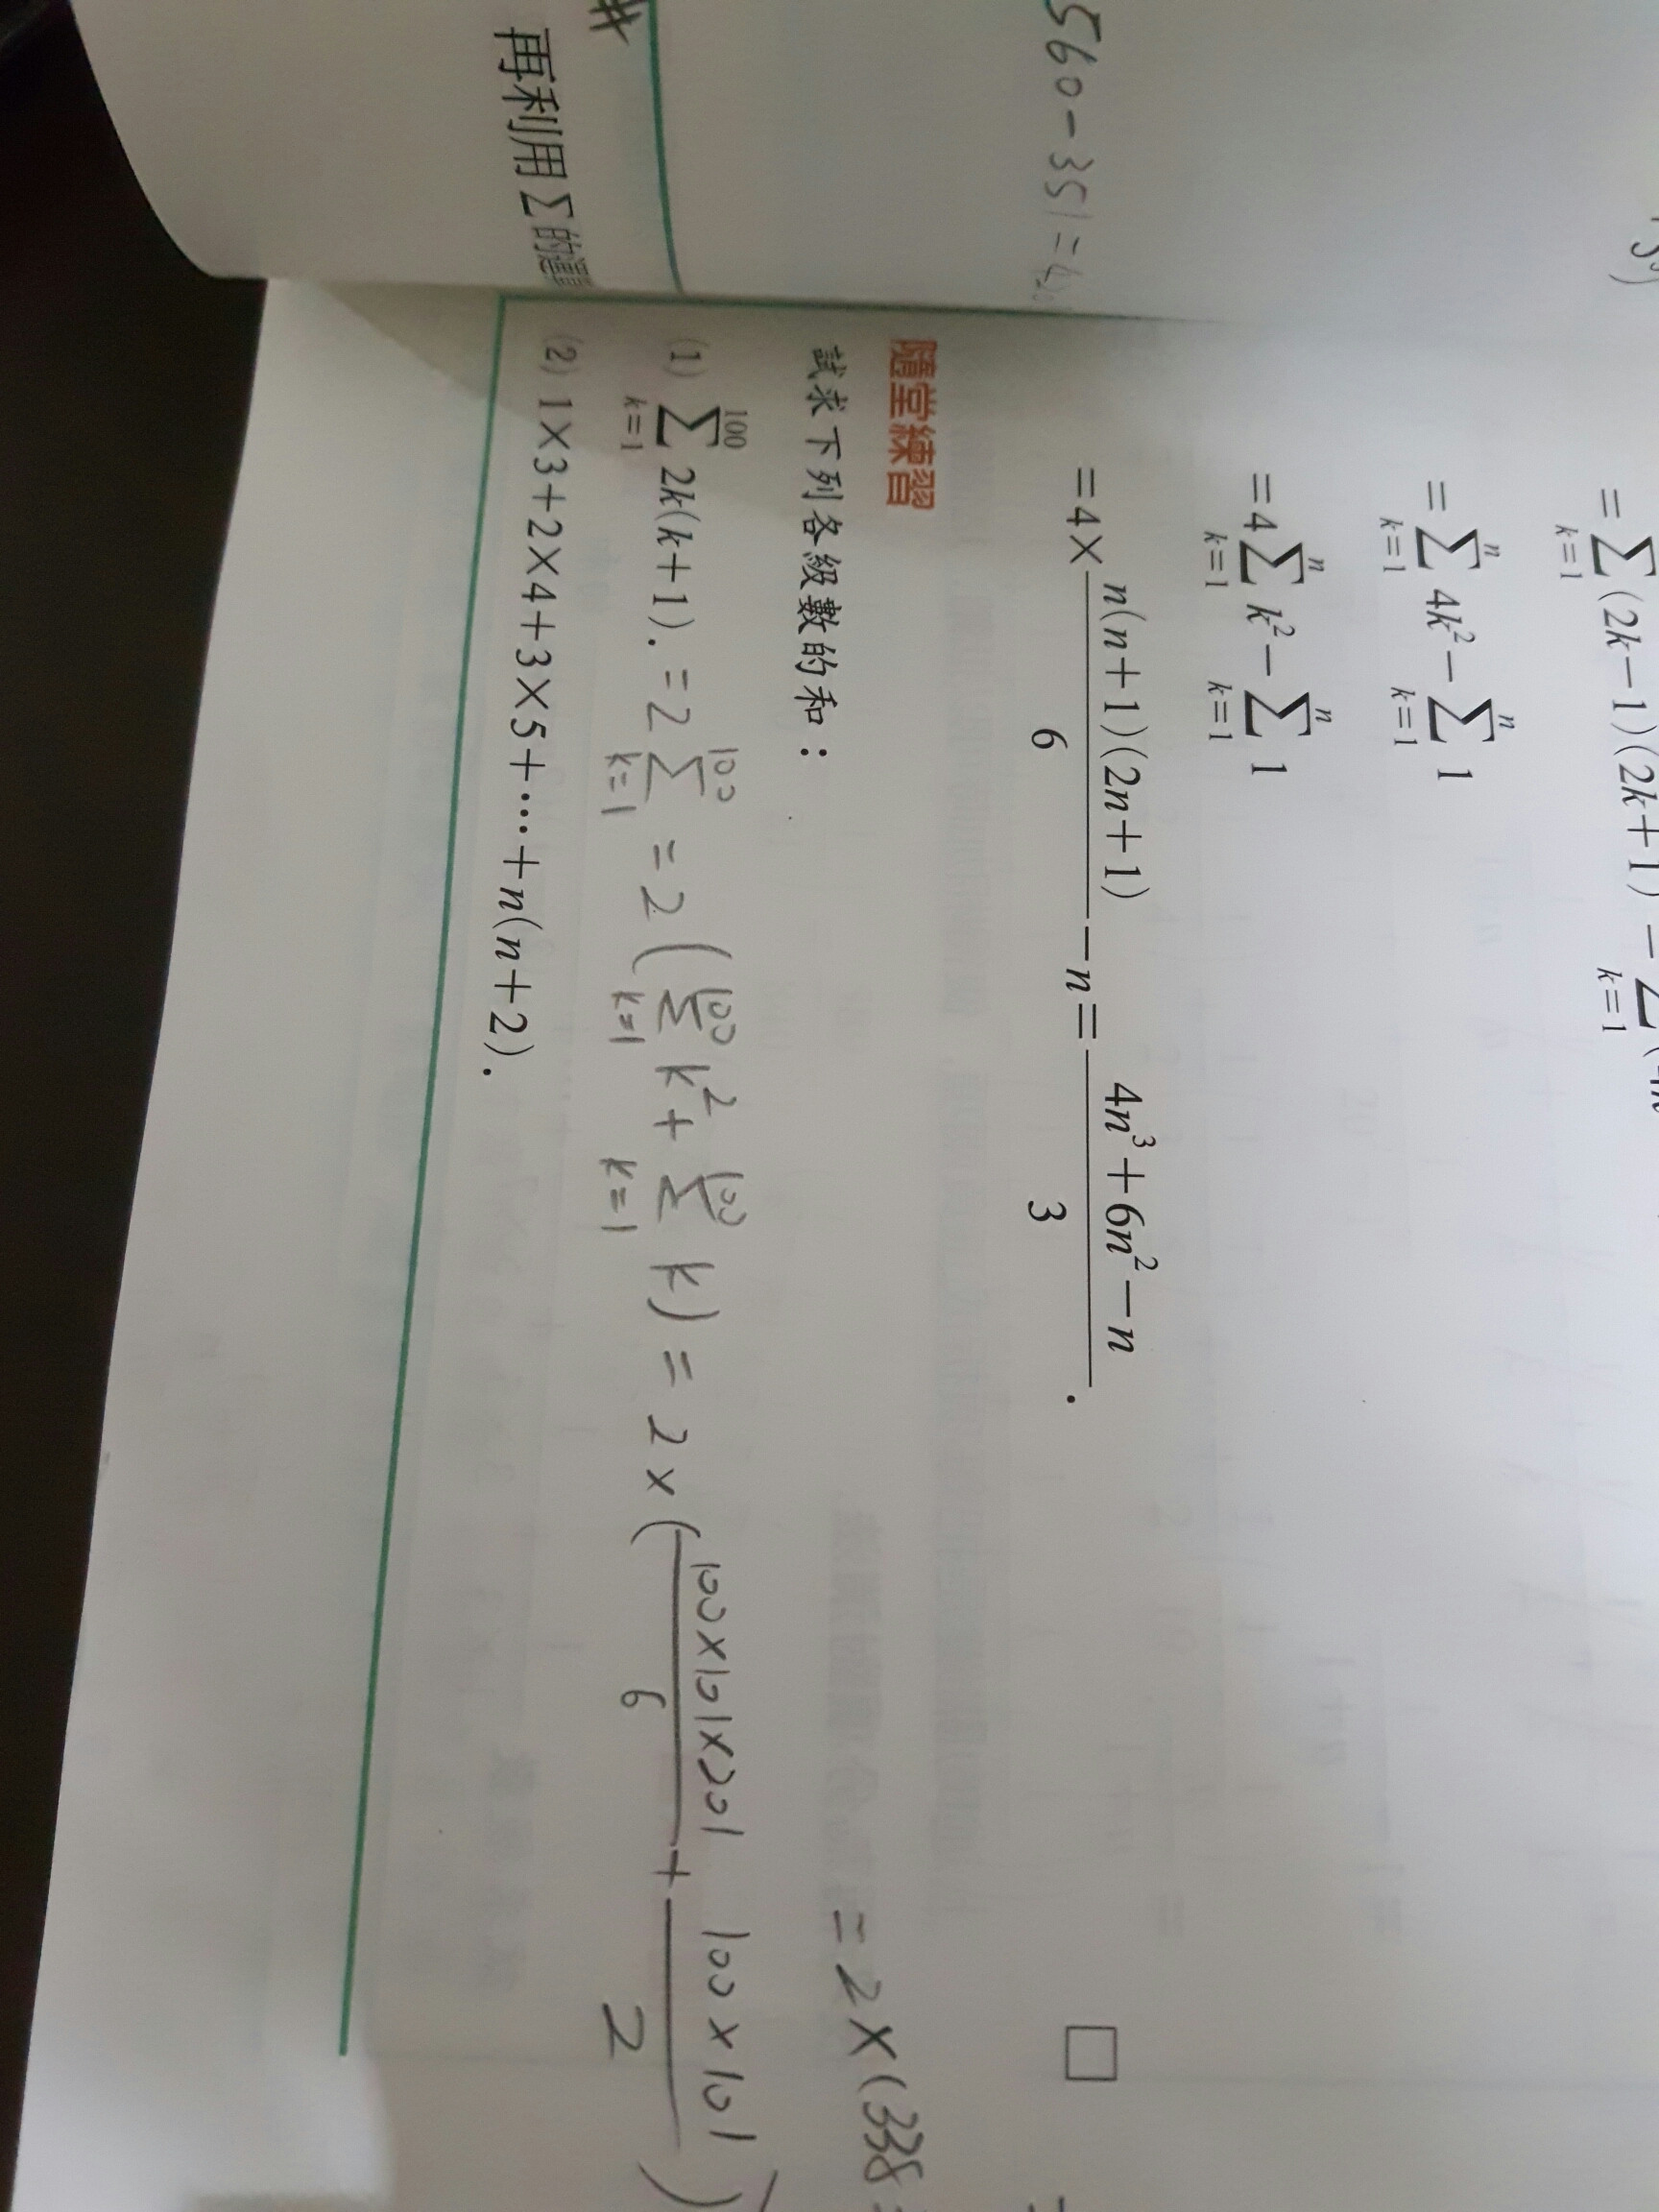 560-351=
再利用Σ的運
#
=\sum_{k=1}(2k-1)(2k+1)
=\sum_{k=1}^{n}4k^2-\sum_{k=1}^{n}1
=4\sum_{k=1}^{n}k^2-\sum_{k=1}^{n}1
=4×\frac{n(n+1)(2n+1)}{6}-n=\frac{4n^3+6n^2-n}{3}.
□
隨堂練習
試求下列各級數的和：
=2×(338
(1) \sum_{k=1}^{100}2k(k+1). =2\sum_{k=1}^{100} =2(\sum_{k=1}^{100}k^2+\sum_{k=1}^{100}k)=2×(\frac{100×101×201}{6}+\frac{100×101}{2})
(2) 1×3+2×4+3×5+⋯+n(n+2).